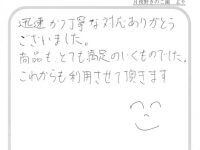 月夜野きのこ園 より
迅速かつ丁寧な対応ありがとう
ございました。
商品も とても満足のいくものでした。
これからも利用させて頂きます